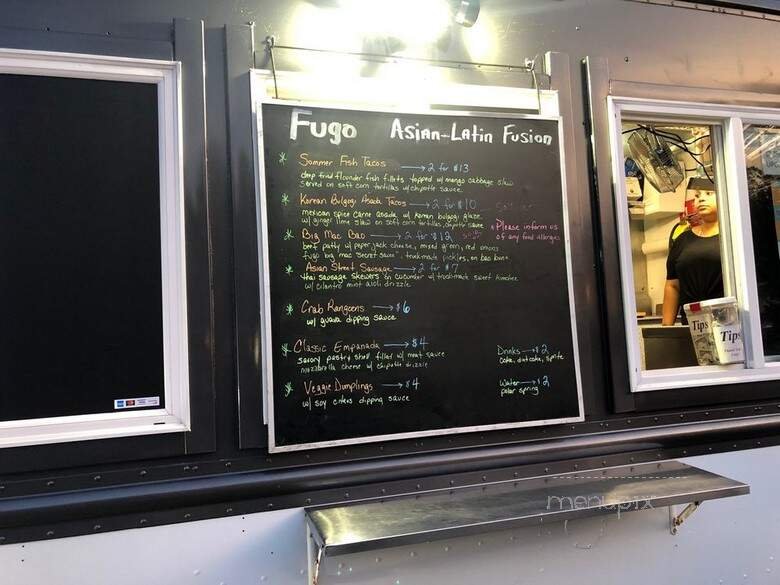 Fugo Asian-Latin Fusion
* Sommer Fish Tacos → 2 for $13
deep fried flounder fish fillets topped w/ mango cabbage slaw
served on soft corn tortillas w/ chipotle sauce
* Korean Bulgogi Asada Tacos → 2 for $10
mexican spice carne asada w/ korean bulgogi glaze
w/ ginger lime slaw on soft corn tortillas, chipotle sauce
* Big Mac Bao → 2 for $12
beef patty w/ pepper jack cheese, mixed green, red onions
fugo big mac "secret sauce", truckmade pickles, on bao buns
* Asian Street Sausage → 2 for $7
thai sausage skewers on cucumber w/ truckmade sweet kimchee
w/ cilantro mint aioli drizzle
* Crab Rangoons → $6
w/ guava dipping sauce
* Classic Empanada → $4
savory pastry shell filled w/ meat sauce
mozzarella cheese w/ chipotle drizzle
* Veggie Dumplings → $4
w/ soy citrus dipping sauce
* Please inform us
of any food allergies
Drinks → $2
coke, diet coke, sprite
Water → $2
polar spring
Tips
Tips
menupix